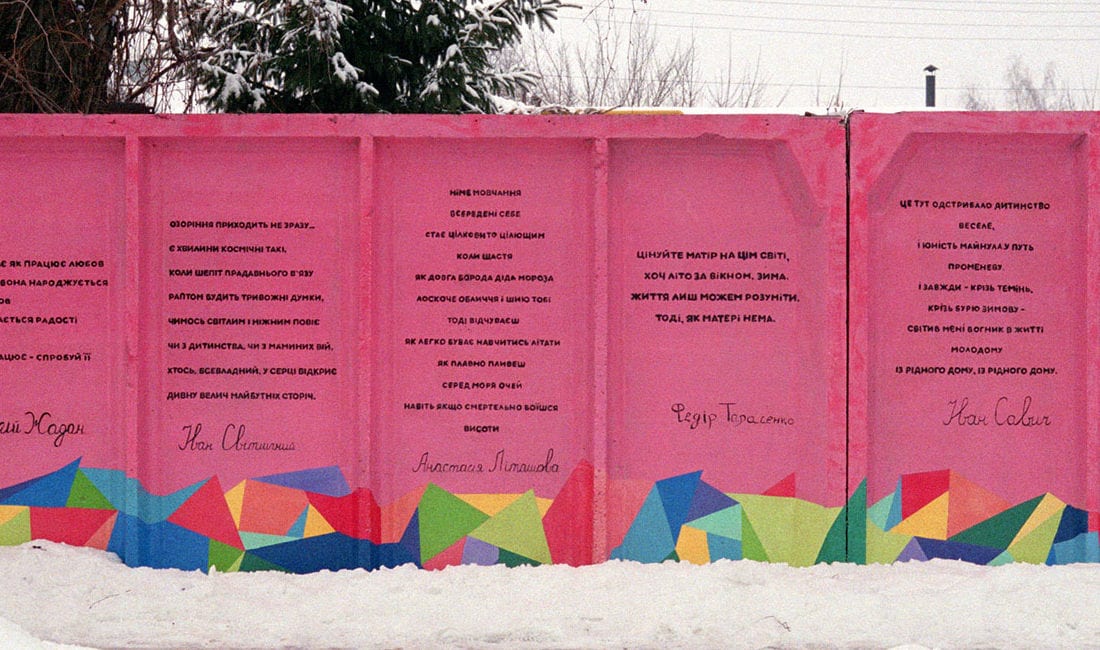 Є ЯК ПРАЦЮЄ ЛЮБОВ
ВОНА НАРОДЖУЄТЬСЯ
РАДОСТІ
СПРОБУЙ ЇЇ
Жадан
ОЗОРІННЯ ПРИХОДИТЬ НЕ ЗРАЗУ...
Є ХВИЛИНИ КОСМІЧНІ ТАКІ,
КОЛИ ШЕПІТ ПРАДАВНЬОГО В'ЯЗУ
РАПТОМ БУДИТЬ ТРИВОЖНІ ДУМКИ,
ЧИМОСЬ СВІТЛИМ І НІЖНИМ ПОВІЄ
ЧИ З ДИТИНСТВА, ЧИ З МАМИНИХ ВІЙ,
ХТОСЬ, ВСЕВЛАДНИЙ, У СЕРЦІ ВІДКРИЄ
ДИВНУ ВЕЛИЧ МАЙБУТНІХ СТОРІЧ.
Іван Світличний
НІМЕ МОВЧАННЯ
ВСЕРЕДЕНІ СЕБЕ
СТАЄ ЦІЛКОВИТО ЦІЛЮЩИМ
КОЛИ ЩАСТЯ
ЯК ДОВГА БОРОДА ДІДА МОРОЗА
ЛОСКОЧЕ ОБЛИЧЧЯ І ШИЮ ТОБІ
ТОДІ ВІДЧУВАЄШ
ЯК ЛЕГКО БУВАЄ НАВЧИТИСЬ ЛІТАТИ
ЯК ПЛАВНО ПЛИВЕШ
СЕРЕД МОРЯ ОЧЕЙ
НАВІТЬ ЯКЩО СМЕРТЕЛЬНО БОЇШСЯ
ВИСОТИ
Анастасія Літашова
ЦІНУЙТЕ МАТІР НА ЦІМ СВІТІ,
ХОЧ ЛІТО ЗА ВІКНОМ, ЗИМА.
ЖИТТЯ ЛИШ МОЖЕМ РОЗУМІТИ,
ТОДІ, ЯК МАТЕРІ НЕМА.
Федір Тарасенко
ЦЕ ТУТ ОДСТРИБАЛО ДИТИНСТВО
ВЕСЕЛЕ,
І ЮНІСТЬ МАЙНУЛА У ПУТЬ
ПРОМЕНЕВУ.
І ЗАВЖДИ - КРІЗЬ ТЕМІНЬ,
КРІЗЬ БУРЮ ЗИМОВУ -
СВІТИВ МЕНІ ВОГНИК В ЖИТТІ
МОЛОДОМУ
ІЗ РІДНОГО ДОМУ, ІЗ РІДНОГО ДОМУ.
Іван Савич